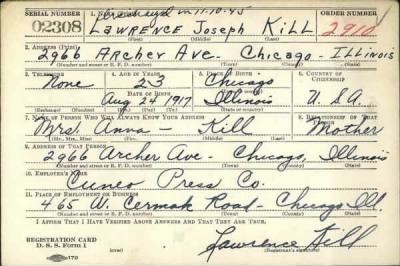 SERIAL NUMBER 1. NAME ORDER NUMBER
m 11-10-45
02308 LAWRENCE JOSEPH KILL 2910
2. ADDRESS (Print)
2966 ARCHER AVE. CHICAGO - ILLINOIS
(Number and street or R. F. D. number) (Town) (County) (State)
3. TELEPHONE 4. AGE IN YEARS 5. PLACE OF BIRTH 6. COUNTRY OF CITIZENSHIP
None 23 Chicago
DATE OF BIRTH
Aug 24 1917 Illinois U.S.A.
(Exchange) (Number) (Mo.) (Day) (Yr.) (State or country)
7. NAME OF PERSON WHO WILL ALWAYS KNOW YOUR ADDRESS 8. RELATIONSHIP OF THAT PERSON
Mrs. Anna - Kill Mother
(Mr., Mrs., Miss) (First) (Middle) (Last)
9. ADDRESS OF THAT PERSON
2966 Archer Ave - Chicago, Illinois
(Number and street or R. F. D. number) (Town) (County) (State)
10. EMPLOYER'S NAME
Cuneo Press Co.
11. PLACE OF EMPLOYMENT OR BUSINESS
465 W. Cermak Road - Chicago Ill.
(Number and street or R. F. D. number) (Town) (County) (State)
I AFFIRM THAT I HAVE VERIFIED ABOVE ANSWERS AND THAT THEY ARE TRUE.
REGISTRATION CARD
D. S. S. Form 1 Lawrence Kill
170 (Registrant's signature)